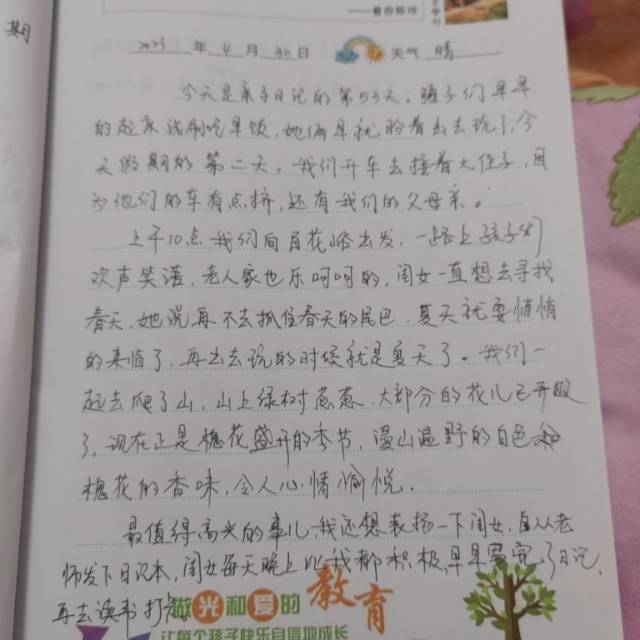 期
——曼德斯河
2023 年 4 月 30 日 天气 晴
今天是亲子日记的第53天，孩子们早早
的起来洗刷吃早饭，她俩早就盼着去玩了，今
天假期的第二天，我们开车去接着大侄子，因
为他们的车有点挤，还有我们的父母亲。
上午10点我们向百花峪出发，一路上孩子们
欢声笑语，老人家也乐呵呵的，闺女一直想去寻找
春天，她说再不去抓住春天的尾巴，夏天就要悄悄
的来临了，再出去玩的时候就是夏天了。我们一
起去爬了山，山上绿树葱葱，大部分的花儿已开败
了，现在正是槐花盛开的季节，漫山遍野的白色
槐花的香味，令人心情愉悦。
最值得高兴的事儿，我还想表扬一下闺女，自从老
师发下日记本，闺女每天晚上比我都积极，早早写完了日记，
再去读书打
做光和爱的教育
让每个孩子快乐自信地成长